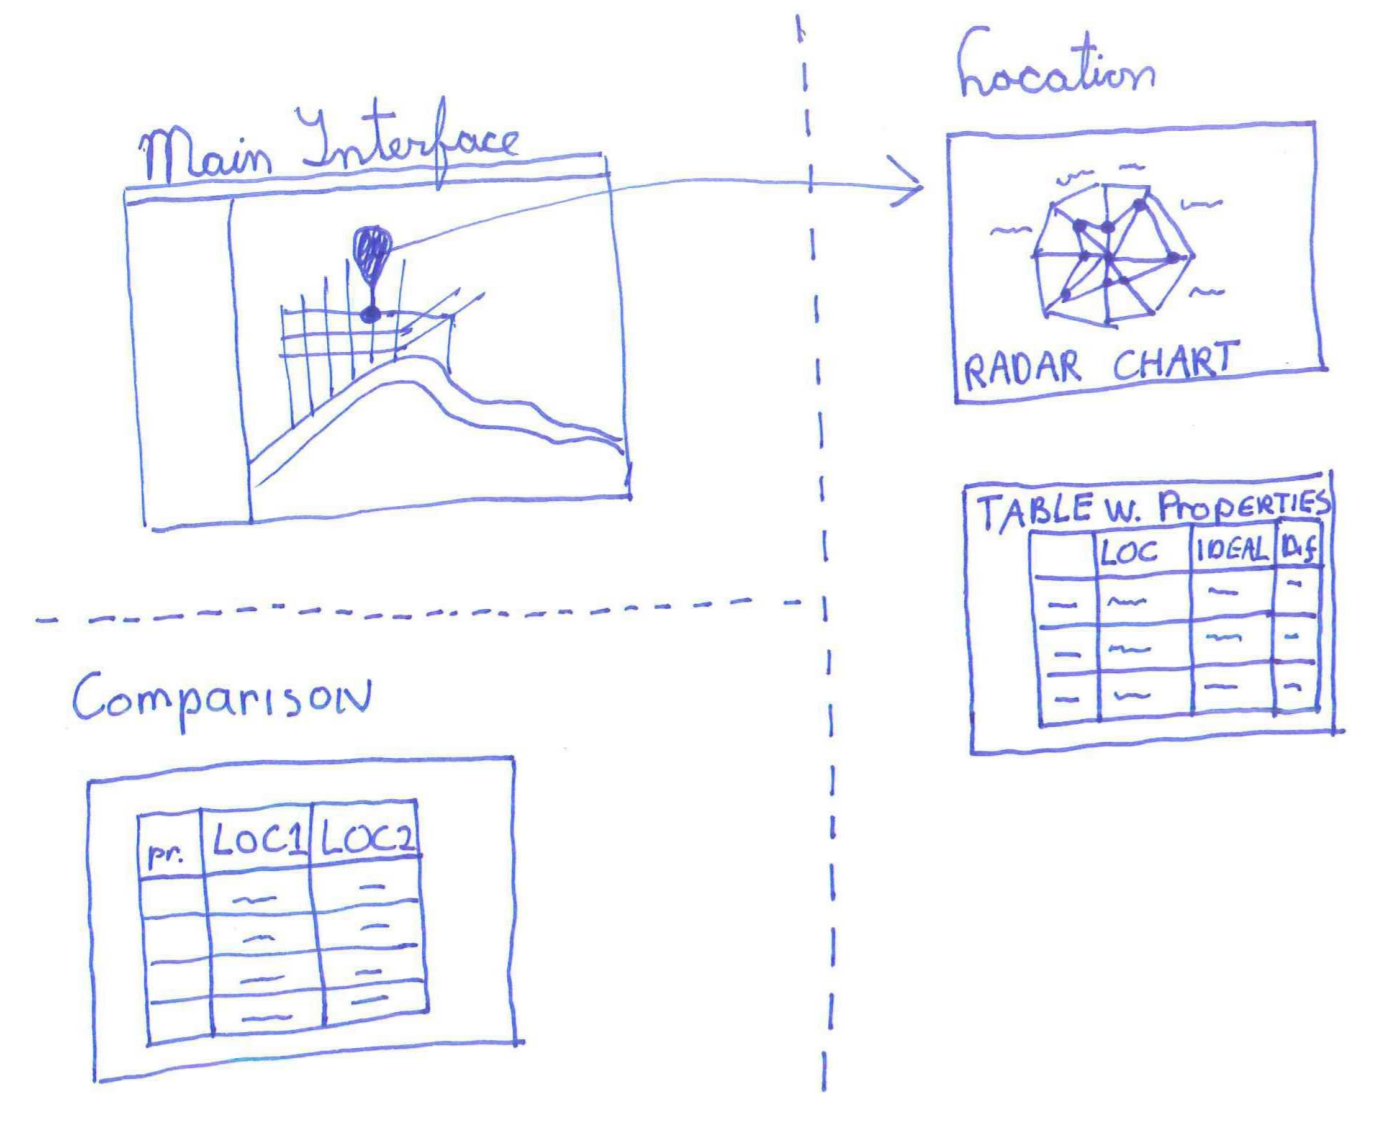 Main Interface
Location
RADAR CHART
TABLE W. PropERTIES
LOC IDEAL Dif
Comparison
pr. LOC1 LOC2